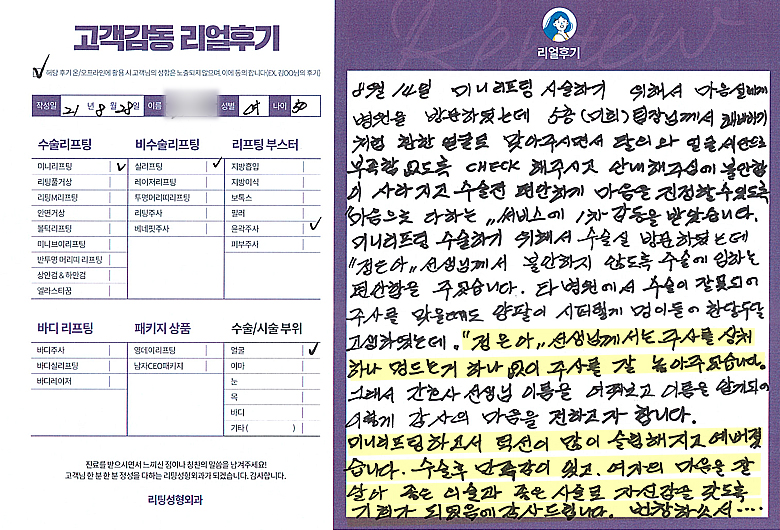 고객감동 리얼후기
해당 후기 온/오프라인에 활용 시 고객님의 성함은 노출되지 않으며, 이에 동의 합니다(EX. 김OO님의 후기)
작성일 21 년 8 월 28 일 이름 성별 여 나이 50
수술리프팅
미니리프팅
리팅풀거상
리팅M리프팅
안면거상
볼턱리프팅
미니브이리프팅
반투명 머리띠 리프팅
상안검 & 하안검
엘라스티꿈
비수술리프팅
실리프팅
레이저리프팅
투명머리띠리프팅
리팅주사
베네핏주사
리프팅 부스터
지방흡입
지방이식
보톡스
필러
윤곽주사
피부주사
바디 리프팅
바디주사
바디실리프팅
바디레이저
패키지 상품
영데이리프팅
남자CEO패키지
수술/시술 부위
얼굴
이마
눈
목
바디
기타 ( )
진료를 받으시면서 느끼신 점이나 칭찬의 말씀을 남겨주세요!
고객님 한 분 한 분 정성을 다하는 리팅성형외과가 되겠습니다. 감사합니다.
리팅성형외과
Review
리얼후기
8월 14일 미니리프팅 시술하기 위해서 마음설레며
병원을 방문하였는데 5층 (미희)팀장님께서 해바라기
처럼 환한 얼굴로 맞아주시면서
부족함 없도록 CHECK 해주시고 안내해주심에 불안함
이 사라지고 수술전 편안하게 마음을 진정할수있도록
마음으로 다하는 "서비스에 1차 감동을 받았습니다.
미니리프팅 수술하기 위해서 수술실 방문하였는데
"정은아" 선생님께서 불안하지 않도록 수술에 임하는
편안함을 주셨습니다. 타 병원에서 수술이 잘못되어
주사를 맞을때도 양팔이 시퍼렇게 멍이들어 한달두달
고생하였는데. "정은아" 선생님께서는 주사를 상처
하나 멍드는거 하나 없이 주사를 잘 놓아주셨습니다.
그래서 간호사 선생님 이름을 여쭤보고 이름을 알게되어
이렇게 감사의 마음을 전하고자 합니다.
미니리프팅하고서 턱선이 많이 슬림해지고 예뻐졌
습니다. 수술후 만족감이 있고. 여자의 마음을 잘
알아 좋은 의술과 좋은 시술로 자신감을 갖도록
기회가 되었음에 감사드립니다. 번창하소서....